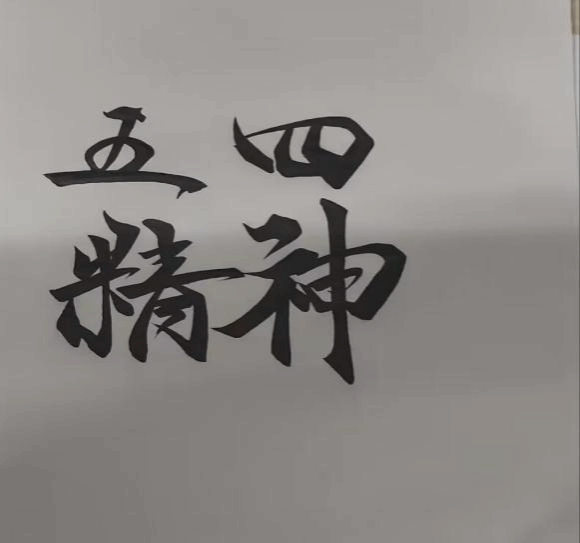 五四
精神